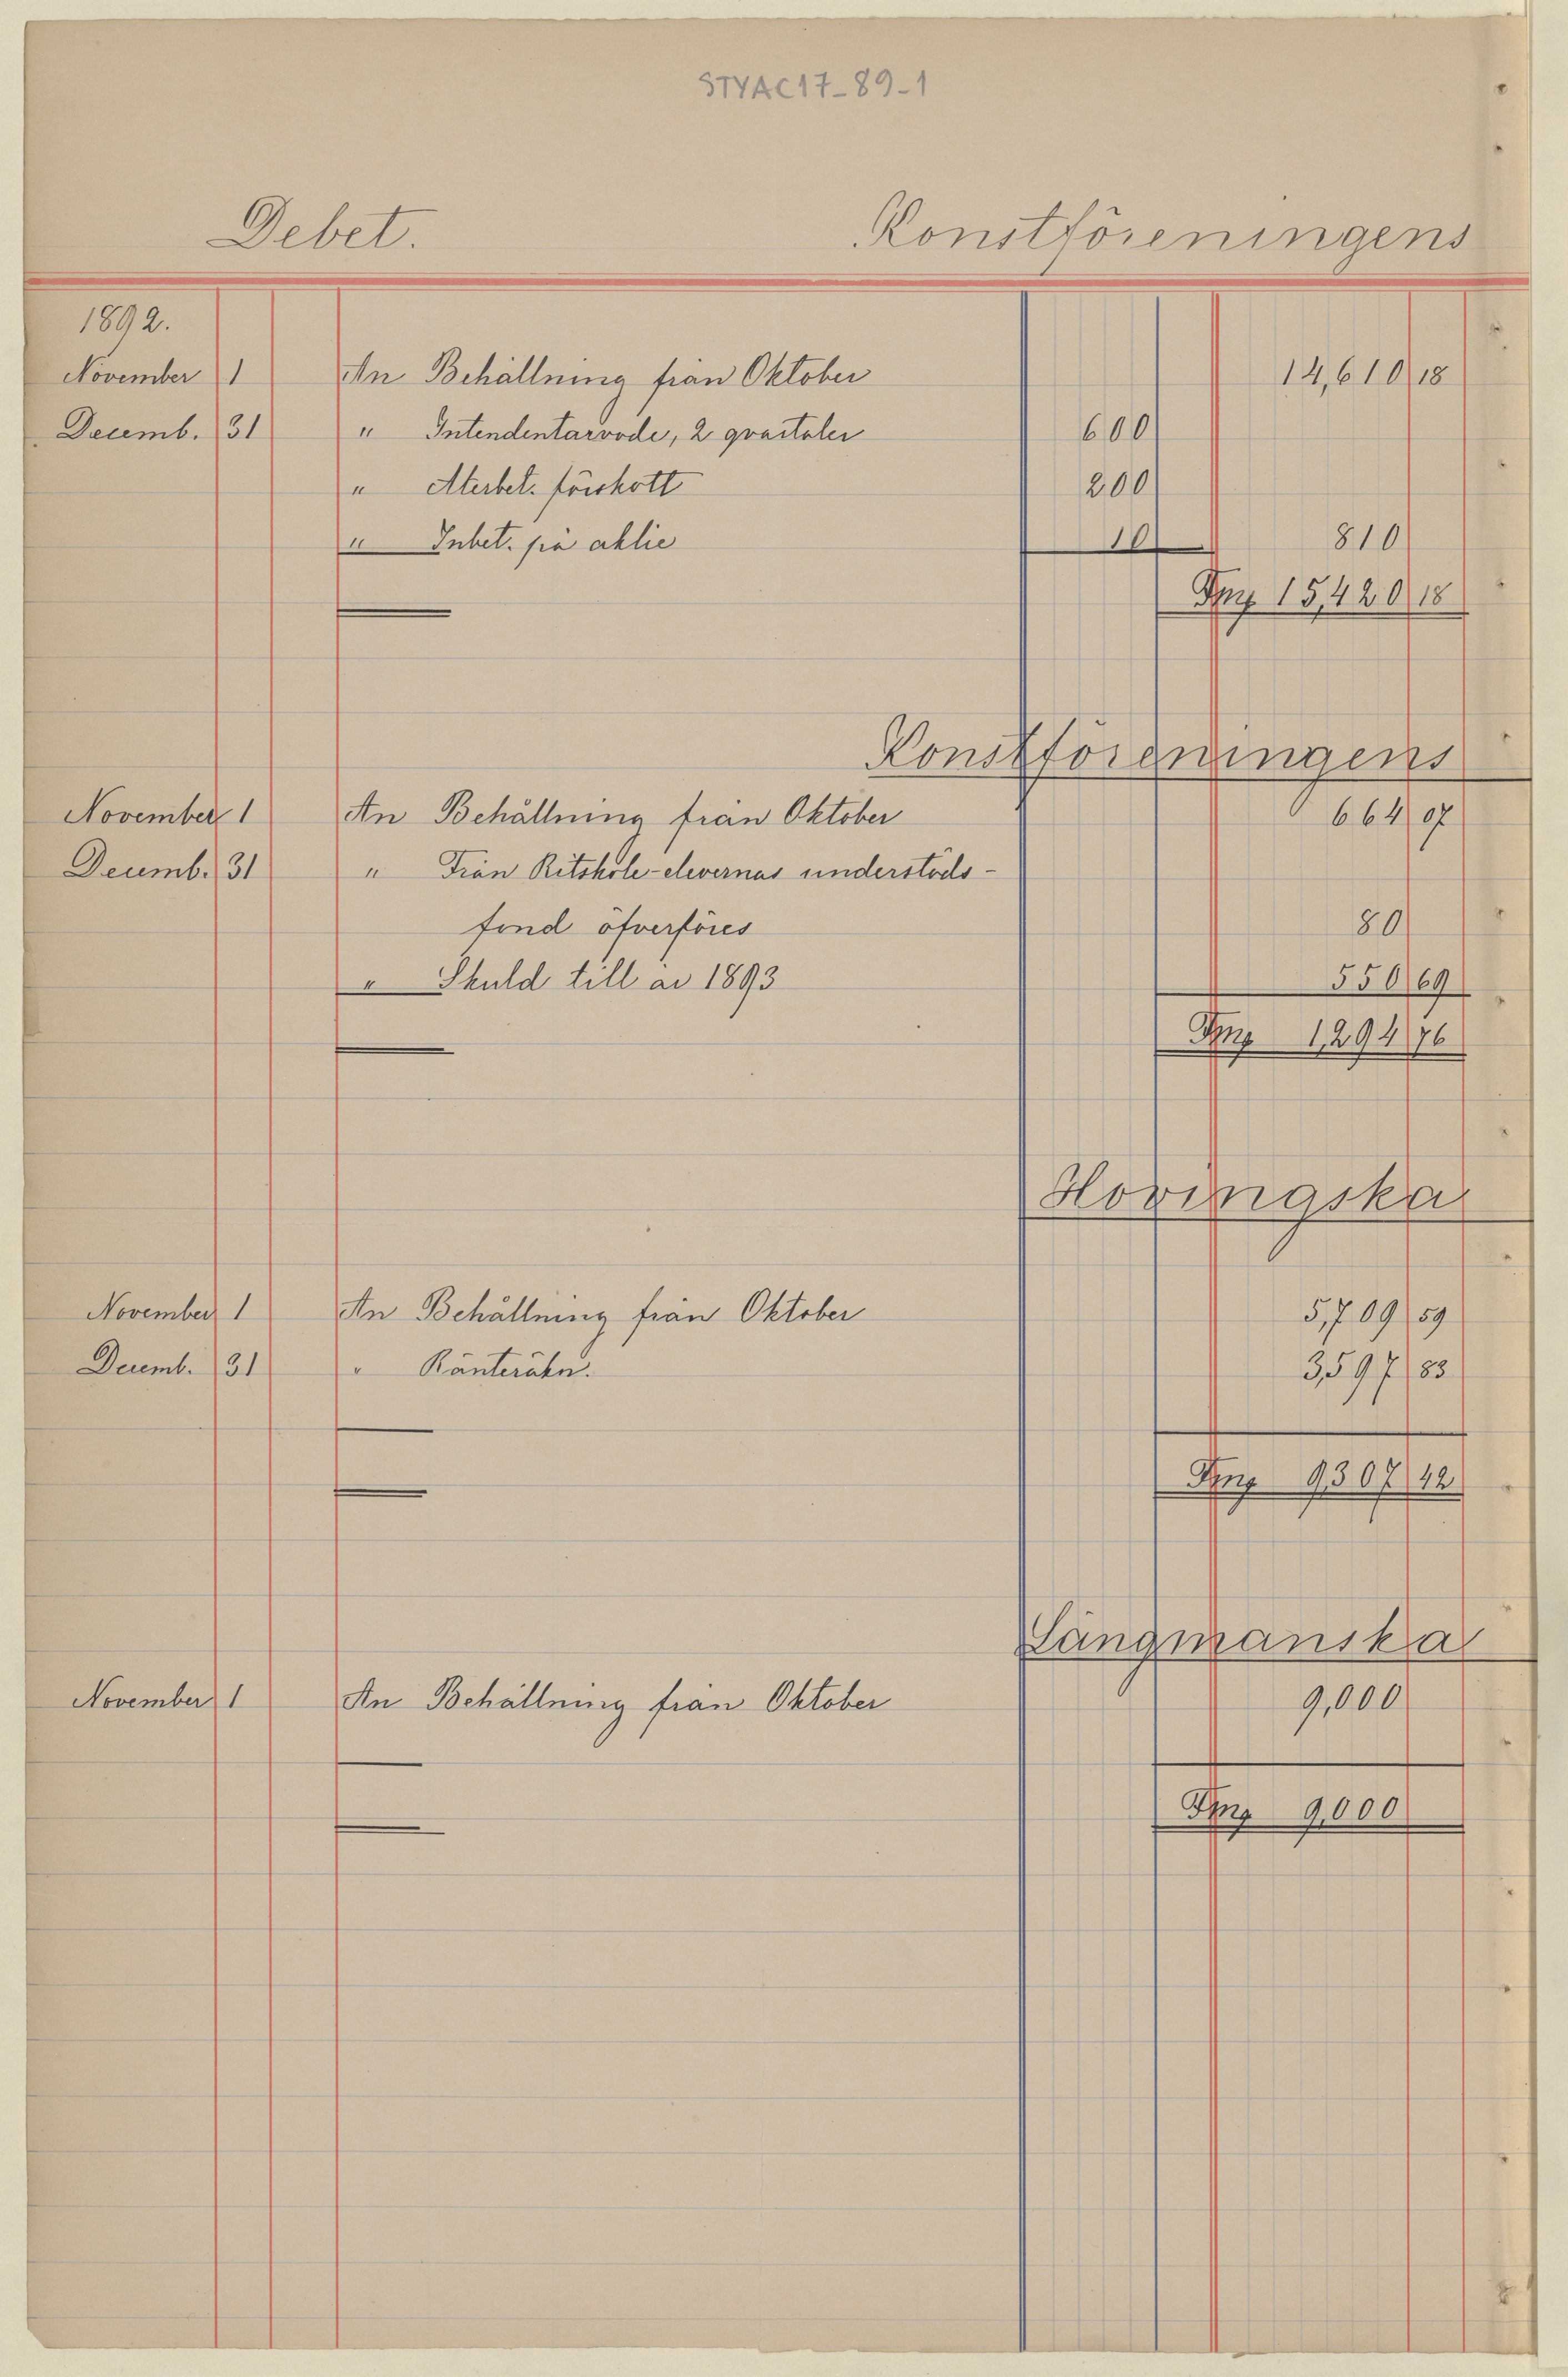 STYAC17-89-1
Debet. Konstföreningens
1892.
November 1 An Behållning från Oktober 14,610 18
Decemb. 31 " Intendentarvode, 2 qvartaler 600
" Återbet. förskott 200
" Inbet. på aktie 10 810
Fmg 15,420 18
Konstföreningens
November 1 An Behållning från Oktober 664 07
Decemb. 31 " Från Ritskole-elevernas understöds-
fond öfverföres 80
" Skuld till år 1893 550 69
Fmg 1,294 76
Hovingska
November 1 An Behållning från Oktober 5,709 59
Decemb. 31 " Ränteräkn. 3,597 83
Fmg 9,307 42
Längmanska
November 1 An Behållning från Oktober 9,000
Fmg 9,000